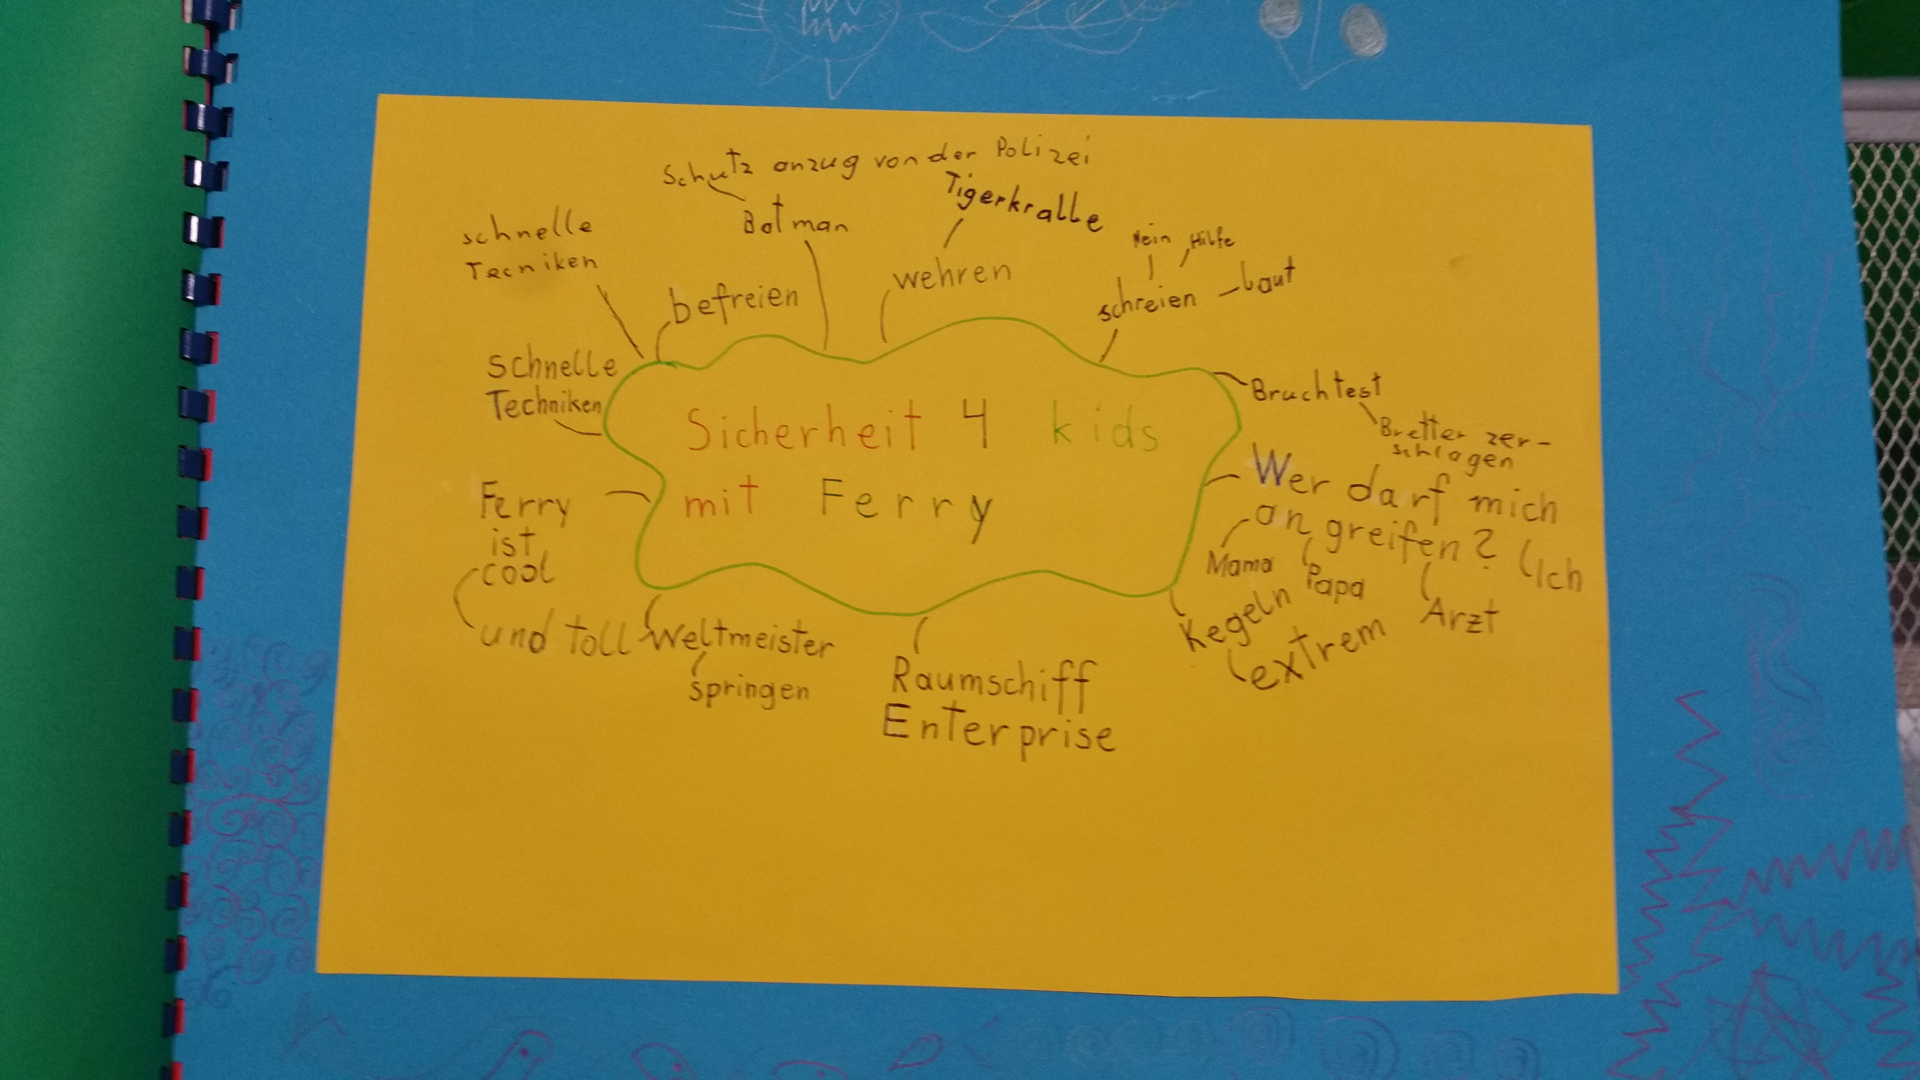 Schutz anzug von der Polizei
Batman
Tigerkralle
wehren
Nein Hilfe
schreien - Laut
schnelle
Tecniken
befreien
schnelle
Techniken
Sicherheit 4 kids
mit Ferry
Bruchtest
Bretter zer-
schlagen
Wer darf mich
angreifen?
Mama Papa Arzt Ich
Ferry
ist
cool
und toll
Weltmeister
springen
Raumschiff
Enterprise
Kegeln
extrem